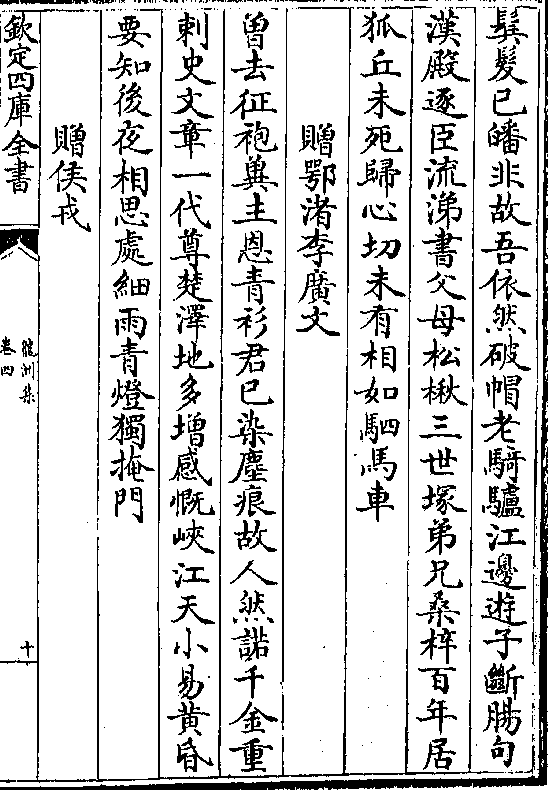 鬂髮已皤非故吾依然破帽老騎驢江邊遊子斷腸句
漢殿逐臣流涕書父母松楸三世塚弟兄桑梓百年居
狐丘未死歸心切未有相如駟馬車
贈鄂渚李廣文
曽去征袍異主恩青衫君已染塵痕故人然諾千金重
刺史文章一代尊楚澤地多增感慨峽江天小易黄昏
要知後夜相思處細雨青燈獨掩門
贈侯戎
欽定四庫全書
龍洲集
卷四
十